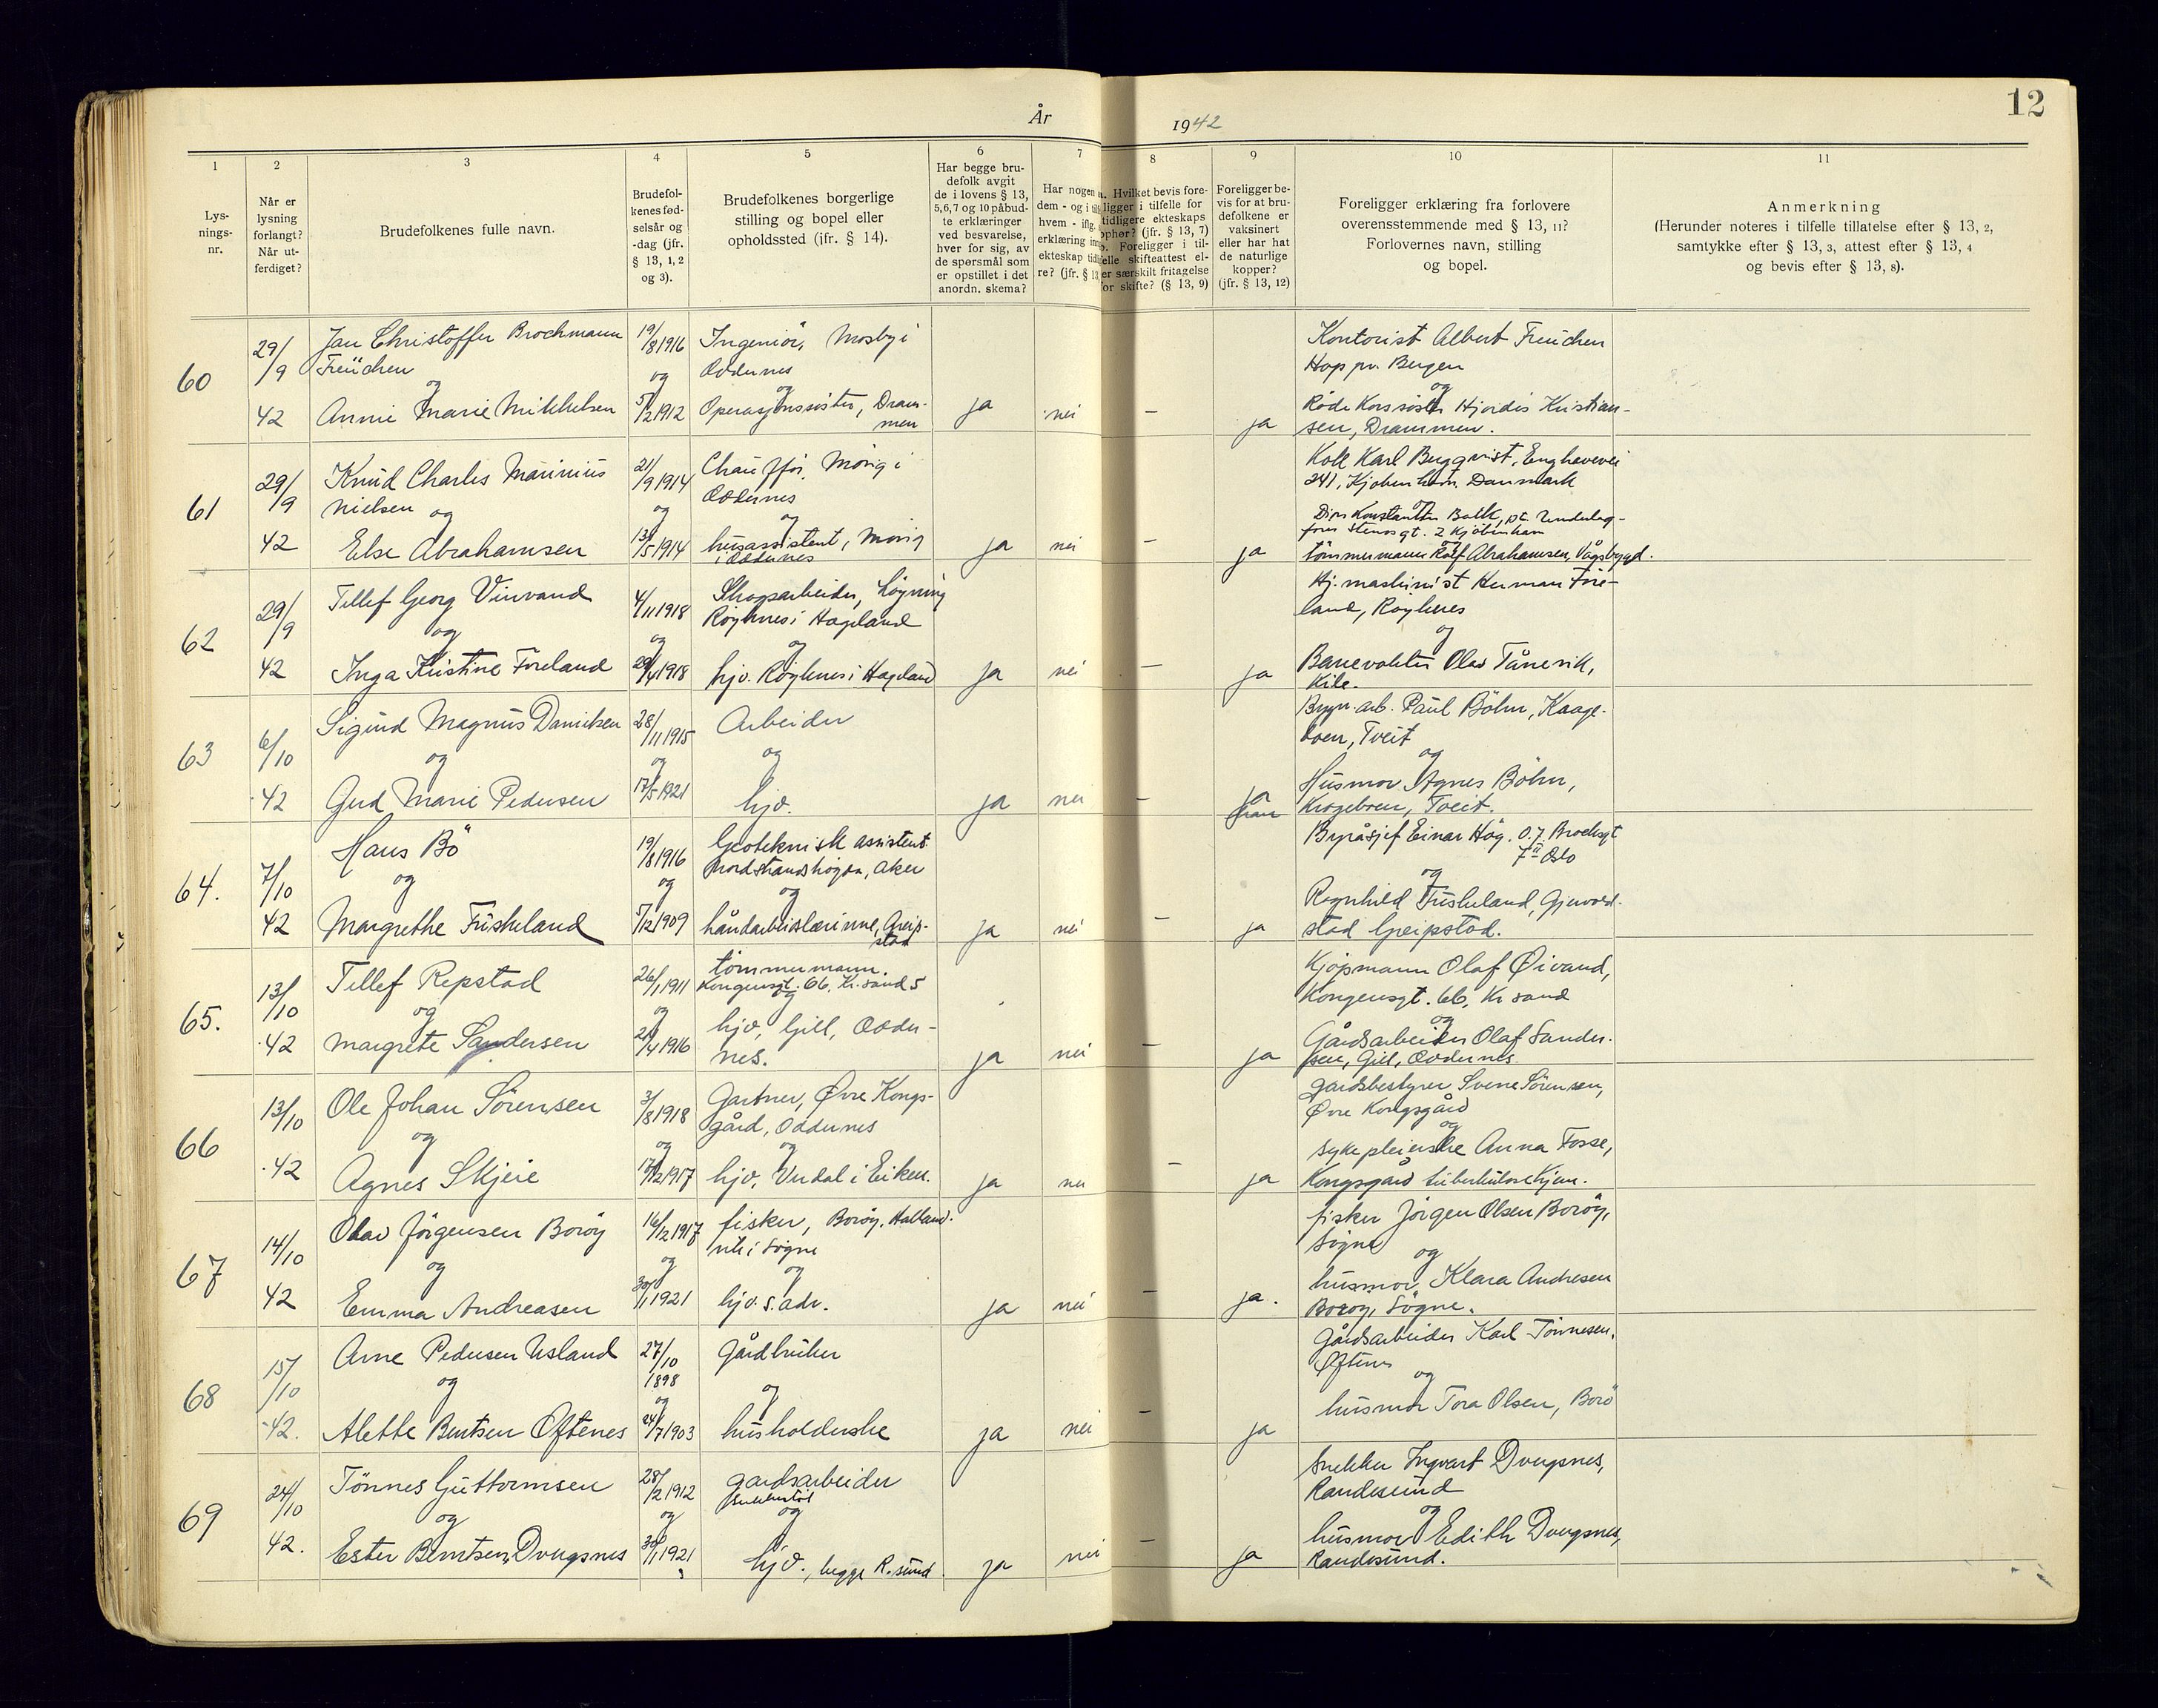 År 1942
12
1
2
3
4
5
6
7
8
9
10
11
Lys-
nings-
nr.
Når er
lysning
forlangt?
Når ut-
ferdiget?
Brudefolkenes fulle navn.
Brudefol-
kenes fød-
selsår og
-dag (jfr.
§ 13, 1, 2
og 3).
Brudefolkenes borgerlige
stilling og bopel eller
opholdssted (jfr. § 14).
Har begge bru-
defolk avgit
de i lovens § 13,
5,6,7 og 10 påbud-
te erklæringer
ved besvarelse,
hver for sig, av
de spørsmål som
er opstillet i det
anordn. skema?
Har nogen
dem - og i
hvem - ifig.
erklæring
ekteskap
re? (jfr. § 13
a. Hvilket bevis fore-
ligger i tilfelle for
tidligere ekteskaps
ophør? (jfr. § 13, 7)
b. Foreligger i til-
felle skifteattest el-
er særskilt fritagelse
for skifte? (§ 13, 9)
Foreligger be-
vis for at bru-
defolkene er
vaksinert
eller har hat
de naturlige
kopper?
(jfr. § 13, 12)
Foreligger erklæring fra forlovere
overensstemmende med § 13, 11?
Forlovernes navn, stilling
og bopel.
Anmerkning
(Herunder noteres i tilfelle tillatelse efter § 13, 2,
samtykke efter § 13, 3, attest efter § 13, 4
og bevis efter § 13, 8).
60
29/9
42
Jan Christoffer Brochmann
Freüchen
og
Annie Marie Mikkelsen
19/8 1916
og
5/2 1912
Ingeniør, Mosby i
Oddernes
og
Operasjonssøster, Dram-
men
ja
nei
—
ja
Kontorist Albert Freüchen
Hop pr. Bergen
og
Røde Kors søster Hjørdis Kristian-
sen, Drammen.
61
29/9
42
Knud Charles Marinius
Nielsen og
Else Abrahamsen
21/9 1914
og
13/5 1914
Chauffør,
Oddernes
og
husassistent,
i Oddernes
ja
nei
—
ja
Karl Bergqvist, Enghavevei
241, Kjøbenhavn. Danmark
og
gt. 2 Kjöbenhavn
tömmermann Rolf Abrahamsen, Vågsbygd.
62
29/9
42
Tellef Georg Vinvand
og
Inga Kristine Foreland
4/11 1918
og
29/4 1918
Skogsarbeider,
i Hægeland
og
hjv. i Hægeland
ja
nei
—
ja
Hj. maskinist Herman Fore-
land,
og
Banevokter Olav
Kile.
63
6/10
42
Sigurd Magnus Danielsen
og
Gud Marie Pedersen
28/11 1915
og
17/5 1921
Arbeider
og
hjv.
ja
nei
—
ja
Paul Böhn, Kaage-
boen, Tveit
og
Husmor Agnes Böhn,
Krageboen, Tveit.
64.
7/10
42
Hans Bö
og
Margrethe Fuskeland
19/8 1916
og
5/12 1909
Geoteknisk assistent
Nordstrandshögda, Aker
og
håndarbeislærinne, Greip-
stad
ja
nei
—
ja
Byråsjef Einar Høg. O.J. Brochsgt
7 II Oslo
og
Ragnhild Fuskeland,
stad Greipstad.
65.
13/10
42
Tellef Repstad
og
Margrete Sandersen
26/1 1911
og
21/4 1916
tömmermann.
Kongensgt. 66, Kr.sand S
og
hjv, Gill, Odder-
nes.
ja
nei
—
ja
Kjøpmann Olaf Øivand,
Kongensgt. 66, Kr sand
og
Gårdsarbeider Olaf Sander-
sen, Gill, Oddernes.
66
13/10
42
Ole Johan Sörensen
og
Agnes Skjeie
3/8 1918
og
17/12 1917
Gartner, Øvre Kongs-
gård, Oddernes
og
hjv, i Eiken.
ja
nei
—
ja
gårdsbestyrer Svene Sörensen,
Øvre Kongsgård
og
sykepleierske Anna Fosse,
Kongsgård tuberkulosehjem.
67
14/10
42
Olav Jörgensen Boröy
og
Emma Andreasen
16/12 1917
og
30/1 1921
fisker, Boröy,
i Sögne
og
hjv. s. adr.
ja
nei
—
ja.
fisker Jörgen Olsen Boröy,
Sögne
og
husmor Klara Andresen
Boröy, Sögne.
68
15/10
42.
Arne Pedersen Usland
og
Alette Berntsen Oftenes
27/10
1898
og
24/7 1903
Gårdbruker
og
husholderske
ja
nei
—
ja
Gårdsarbeider Karl Tönnesen,
Øftenes
og
husmor Tora Olsen, Borö
69
24/10
42.
Tönnes Guttormsen
og
Ester Berntsen Dvergsnes
28/2 1912
og
30/1 1921
gardsarbeider
og
hjv., begge R.sund
ja
nei
—
ja
snekker Ingvart Dvergsnes,
Randesund
og
husmor Edith Dvergsnes,
Randesund.